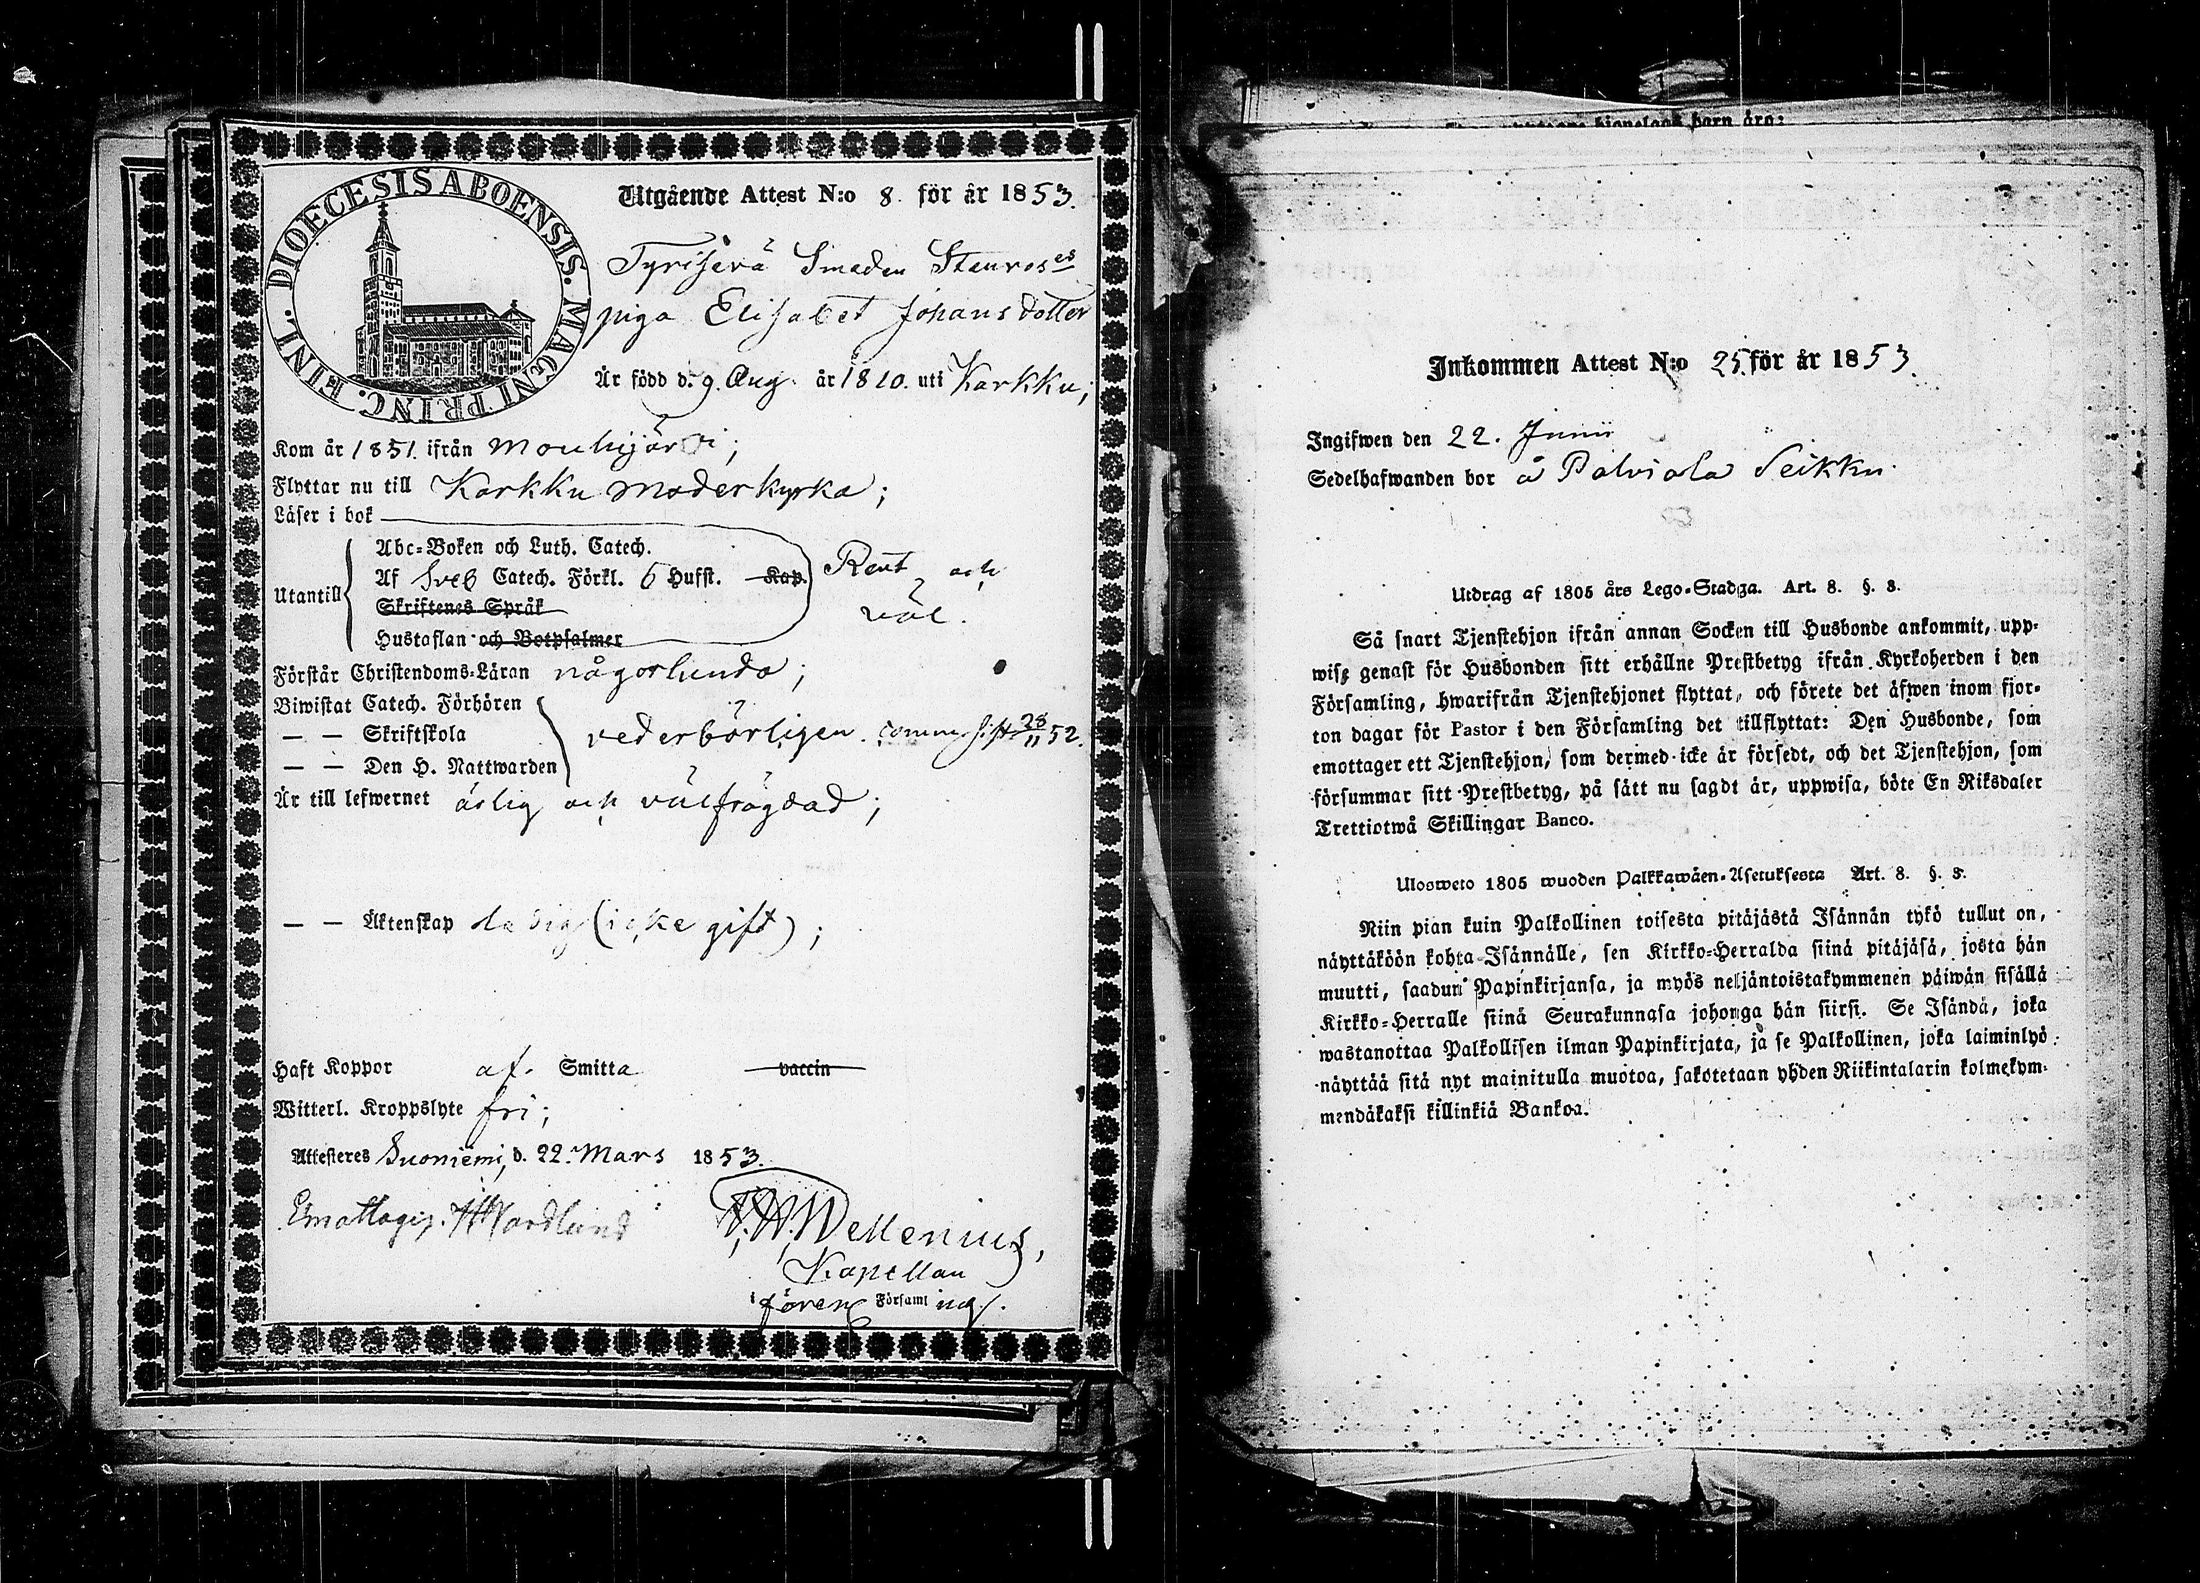 DIOECESIS ABOENSIS. MAGNI PRINC. FINL.
Utgående Attest N:o 8. för år 1853.
Tyrisevä Smeden Stenroses
piga Elisabet Johansdotter
Är född d. 9. Aug. år 1810. uti Karkku;
Kom år 1851. ifrån Mouhijärvi;
Flyttar nu till Karkku moderkyrka;
Läser i bok
Utantill
Abc-Boken och Luth. Catech.
Af Sveb Catech. Förkl. 5 Hufst. Kap.
Skriftenes Språk
Hustaflan och Botpsalmer
Rent och
väl.
Förstår Christendoms-Läran någorlunda;
Biwistat Catech. Förhören
— — Skriftskola
— — Den H. Nattwarden
vederbörligen. comm. sist 28/11 52.
Är till lefwernet ärlig och välfrägdad;
— — Äktenskap ledig (icke gift);
Haft Koppor af. Smitta vaccin
Witterl. Kroppslyte fri;
Attesteres Suoniemi, d. 22. Mars 1853.
Emottagit. Nordlund
Wellenius,
Kapellan
i fören. Församl ing.
hjonelags barn äro:
Inkommen Attest N:o 25. för år 1853.
Ingifwen den 22. Junii
Sedelhafwanden bor å Palviala Seikku.
Utdrag af 1805 års Lego-Stadga. Art. 8. §. 3.
Så snart Tjenstehjon ifrån annan Socken till Husbonde ankommit, upp-
wise genast för Husbonden sitt erhållne Prestbetyg ifrån Kyrkoherden i den
Församling, hwarifrån Tjenstehjonet flyttat, och förete det äfwen inom fjor-
ton dagar för Pastor i den Församling det tillflyttat: Den Husbonde, som
emottager ett Tjenstehjon, som dermed icke är försedt, och det Tjenstehjon, som
försummar sitt Prestbetyg, på sätt nu sagdt är, uppwisa, böte En Riksdaler
Trettiotwå Skillingar Banco.
Ulosweto 1805 wuoden Palkkawäen-Asetuksesta Art. 8. §. 3.
Niin pian kuin Palkollinen toisesta pitäjästä Isännän tykö tullut on,
näyttäköön kohta Isännälle, sen Kirkko-Herralda siinä pitäjäsä, josta hän
muutti, saadun Papinkirjansa, ja myös neljäntoistakymmenen päiwän sisällä
Kirkko-Herralle siinä Seurakunnasa johonga hän siirsi. Se Isändä, joka
wastanottaa Palkollisen ilman Papinkirjata, ja se Palkollinen, joka laiminlyö
näyttää sitä nyt mainitulla muotoa, sakotetaan yhden Riikintalarin kolmekym-
mendäkaksi killinkiä Bankoa.